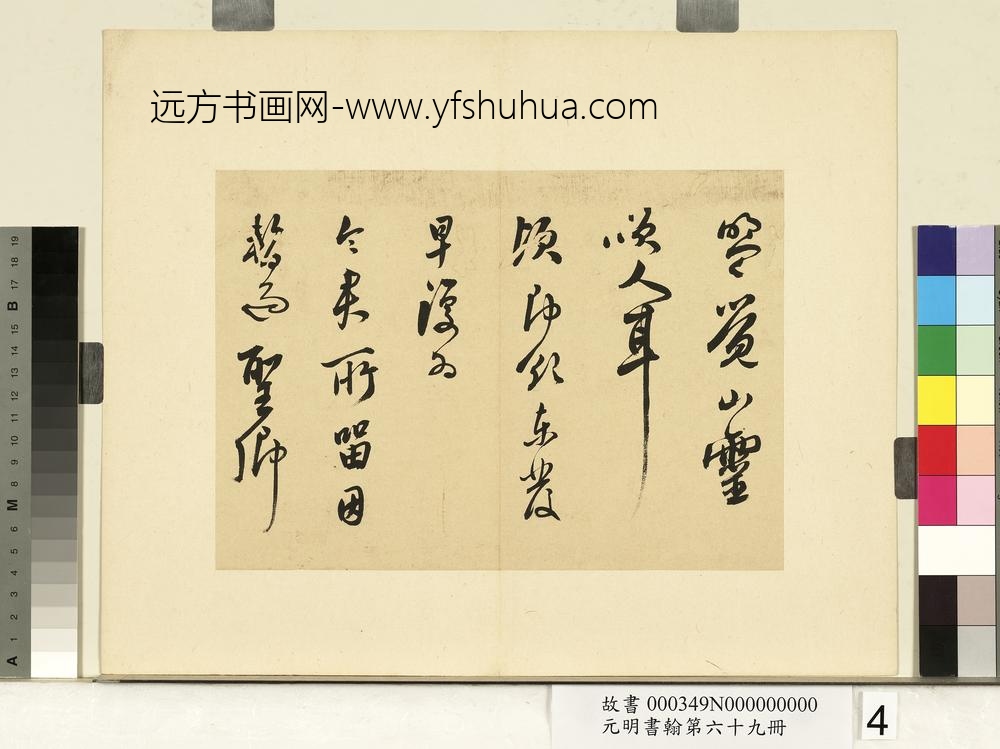 远方书画网-www.yfshuhua.com
山靈
咲人耳
頃即欲東發
早為
今来所留因
聖卿
故書 000349N000000000
元明書翰第六十九冊
4
19
18
17
B
15
14
13
12
11
10
9
8
M
6
5
4
3
2
1
A